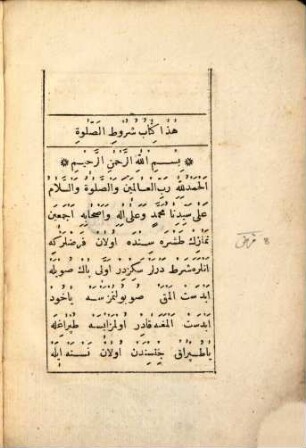 هٰذَا كِتَابُ شُرُوطِ الصَّلٰوةِ
بِسْــمِ اللّٰهِ الرَّحْمٰنِ الرَّحِيْمِ
اَلْحَمْدُ لِلّٰهِ رَبِّ الْعَالَمِينَ وَالصَّلٰوةُ وَالسَّلَامُ
عَلٰى سَيِّدِنَا مُحَمَّدٍ وَعَلٰى اٰلِهِ وَاَصْحَابِهِ اَجْمَعِينَ
نمازڭ طشره سنده اولان فرضلركه
انلره شرط درلر سكزدر اولى پاك صويله
ابدست المق صو بولنمزسه ياخود
ابدست المغه قادر اولمزايسه طپراغله
ياطپراق جنسندن اولان نسنه ايله